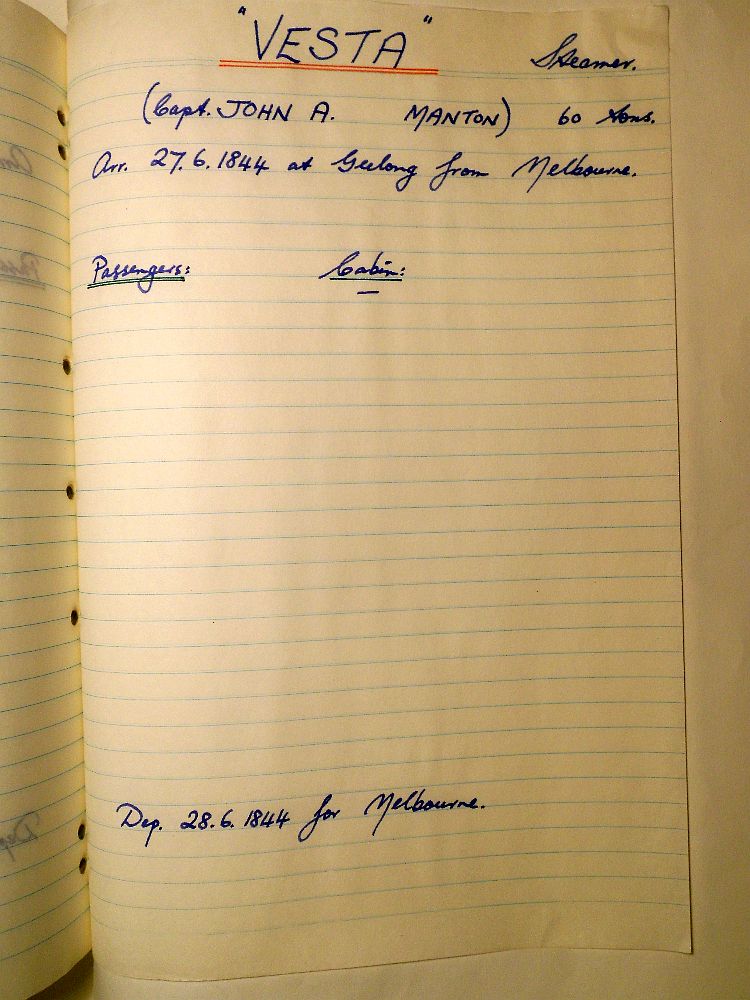 "VESTA" Steamer.
(Capt. JOHN A. MANTON) 60 tons.
Arr. 27.6.1844 at Geelong from Melbourne.
Passengers: Cabin:
—
Dep. 28.6.1844 for Melbourne.